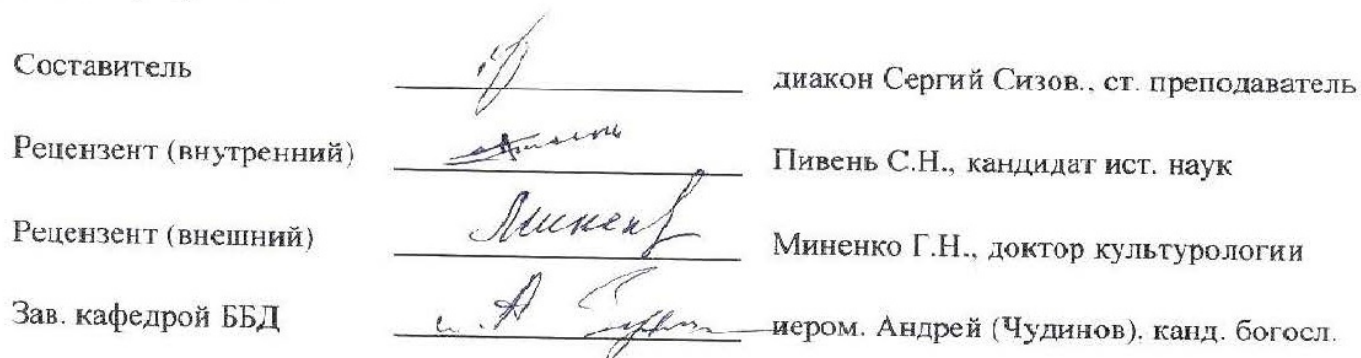 Составитель диакон Сергий Сизов., ст. преподаватель
Рецензент (внутренний) Пивень С.Н., кандидат ист. наук
Рецензент (внешний) Миненко Г.Н., доктор культурологии
Зав. кафедрой ББД иером. Андрей (Чудинов). канд. богосл.